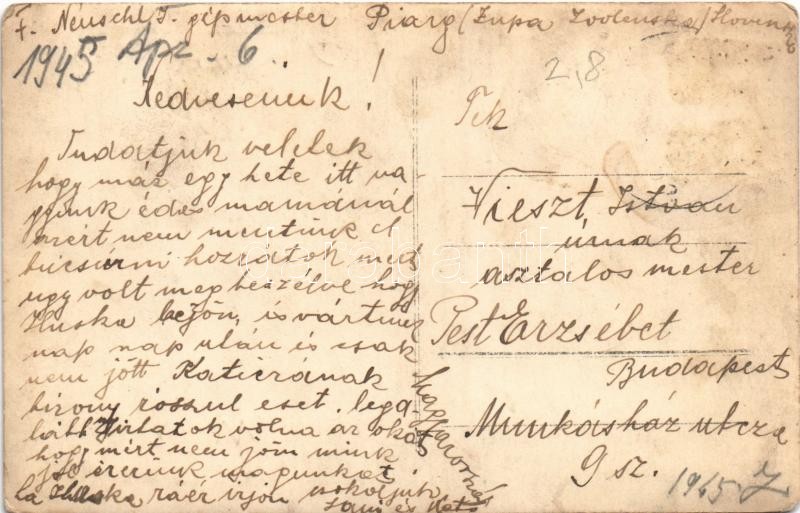 F. Néuschl J. gépmester Piarg (Zupa Zvolenska) Slovensko
1945 Apr. 6.
2,8
Kedveseink!
Tudatjuk veletek
hogy már egy hete itt va
gyunk édes mamánál
azért nem mentünk el
búcsuzni hozzátok mert
ugy volt megbeszélve hogy
Iluska bejön, és vártuk
nap nap után és csak
nem jött Katicának
bizony rosszul eset. lega
lább irtatok volna az okát
hogy miért nem jön mink
jól érezzük magunkat
ha Iluska ráér irjon
csókoljuk
Tek
Vieszt István
úrnak
asztalos mester
Pest Erzsébet
Budapest
Munkásház utcza
9 sz.
1945